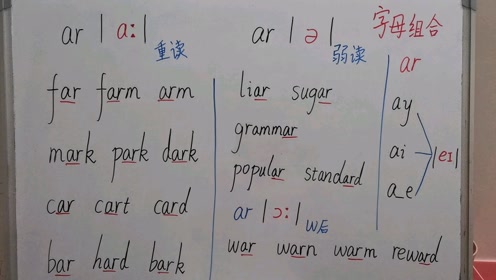 ar |ɑː| 重读
far farm arm
mark park dark
car cart card
bar hard bark
ar |ə| 弱读
liar sugar
grammar
popular standard
ar |ɔː| W后
war warn warm reward
字母组合
ar
ay
ai |eɪ|
a_e